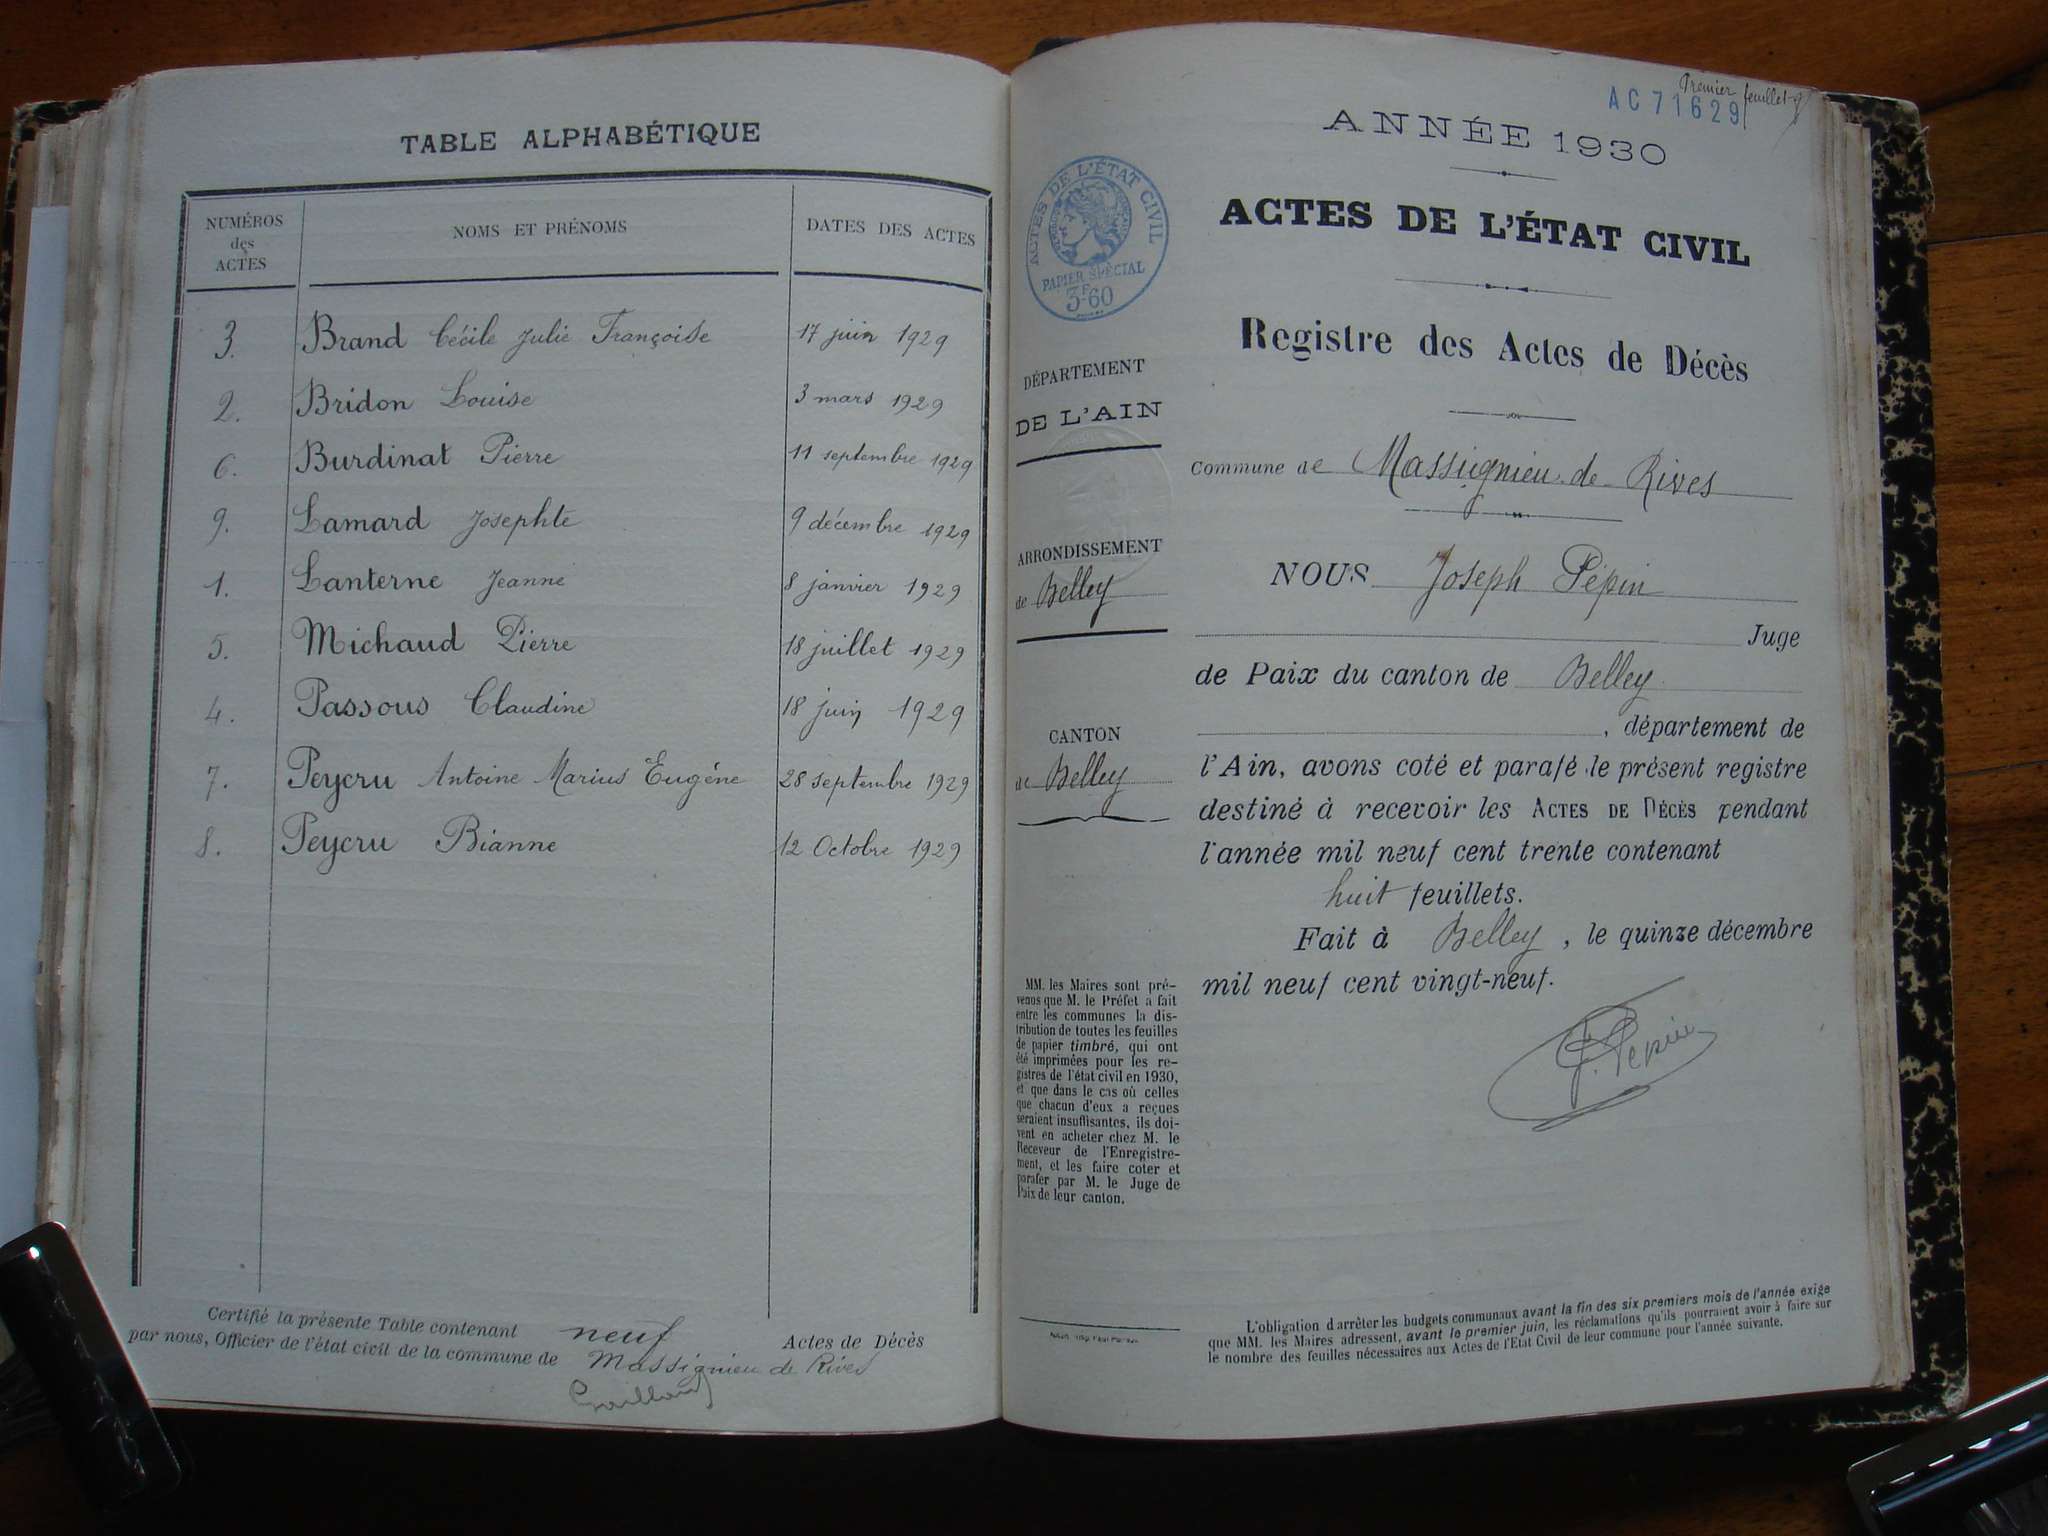 TABLE ALPHABÉTIQUE
NUMÉROS
des
ACTES
NOMS ET PRÉNOMS
DATES DES ACTES
3. Brand Cécile Julie Françoise 17 juin 1929
2. Bridon Louise 3 mars 1929
6. Burdinat Pierre 11 septembre 1929
9. Lamard Josephte 9 décembre 1929
1. Lanterne Jeanne 8 janvier 1929
5. Michaud Pierre 18 juillet 1929
4. Passous Claudine 18 juin 1929
7. Peycru Antoine Marius Eugéne 28 septembre 1929
8. Peycru Bianne 12 Octobre 1929
Certifié la présente Table contenant neuf Actes de Décès
par nous, Officier de l'état civil de la commune de Massignieu de Rives
Premier feuillet
AC 71629
ANNÉE 1930
ACTES DE L'ÉTAT CIVIL
PAPIER SPÉCIAL
3F60
ACTES DE L'ÉTAT CIVIL
Registre des Actes de Décès
DÉPARTEMENT
DE L'AIN
ARRONDISSEMENT
de Belley
CANTON
de Belley
Commune de Massignieu de Rives
NOUS Joseph Pépin
Juge
de Paix du canton de Belley
, département de
l'Ain, avons coté et parafé le présent registre
destiné à recevoir les ACTES DE DÉCÈS pendant
l'année mil neuf cent trente contenant
huit feuillets.
Fait à Belley, le quinze décembre
mil neuf cent vingt-neuf.
J. Pépin
MM. les Maires sont pré-
venus que M. le Préfet a fait
entre les communes la dis-
tribution de toutes les feuilles
de papier timbré, qui ont
été imprimées pour les re-
gistres de l'état civil en 1930,
et que dans le cas où celles
que chacun d'eux a reçues
seraient insuffisantes, ils doi-
vent en acheter chez M. le
Receveur de l'Enregistre-
ment, et les faire coter et
parafer par M. le Juge de
Paix de leur canton.
L'obligation d'arrêter les budgets communaux avant la fin des six premiers mois de l'année exige
que MM. les Maires adressent, avant le premier juin, les réclamations qu'ils pourraient avoir à faire sur
le nombre des feuilles nécessaires aux Actes de l'Etat Civil de leur commune pour l'année suivante.